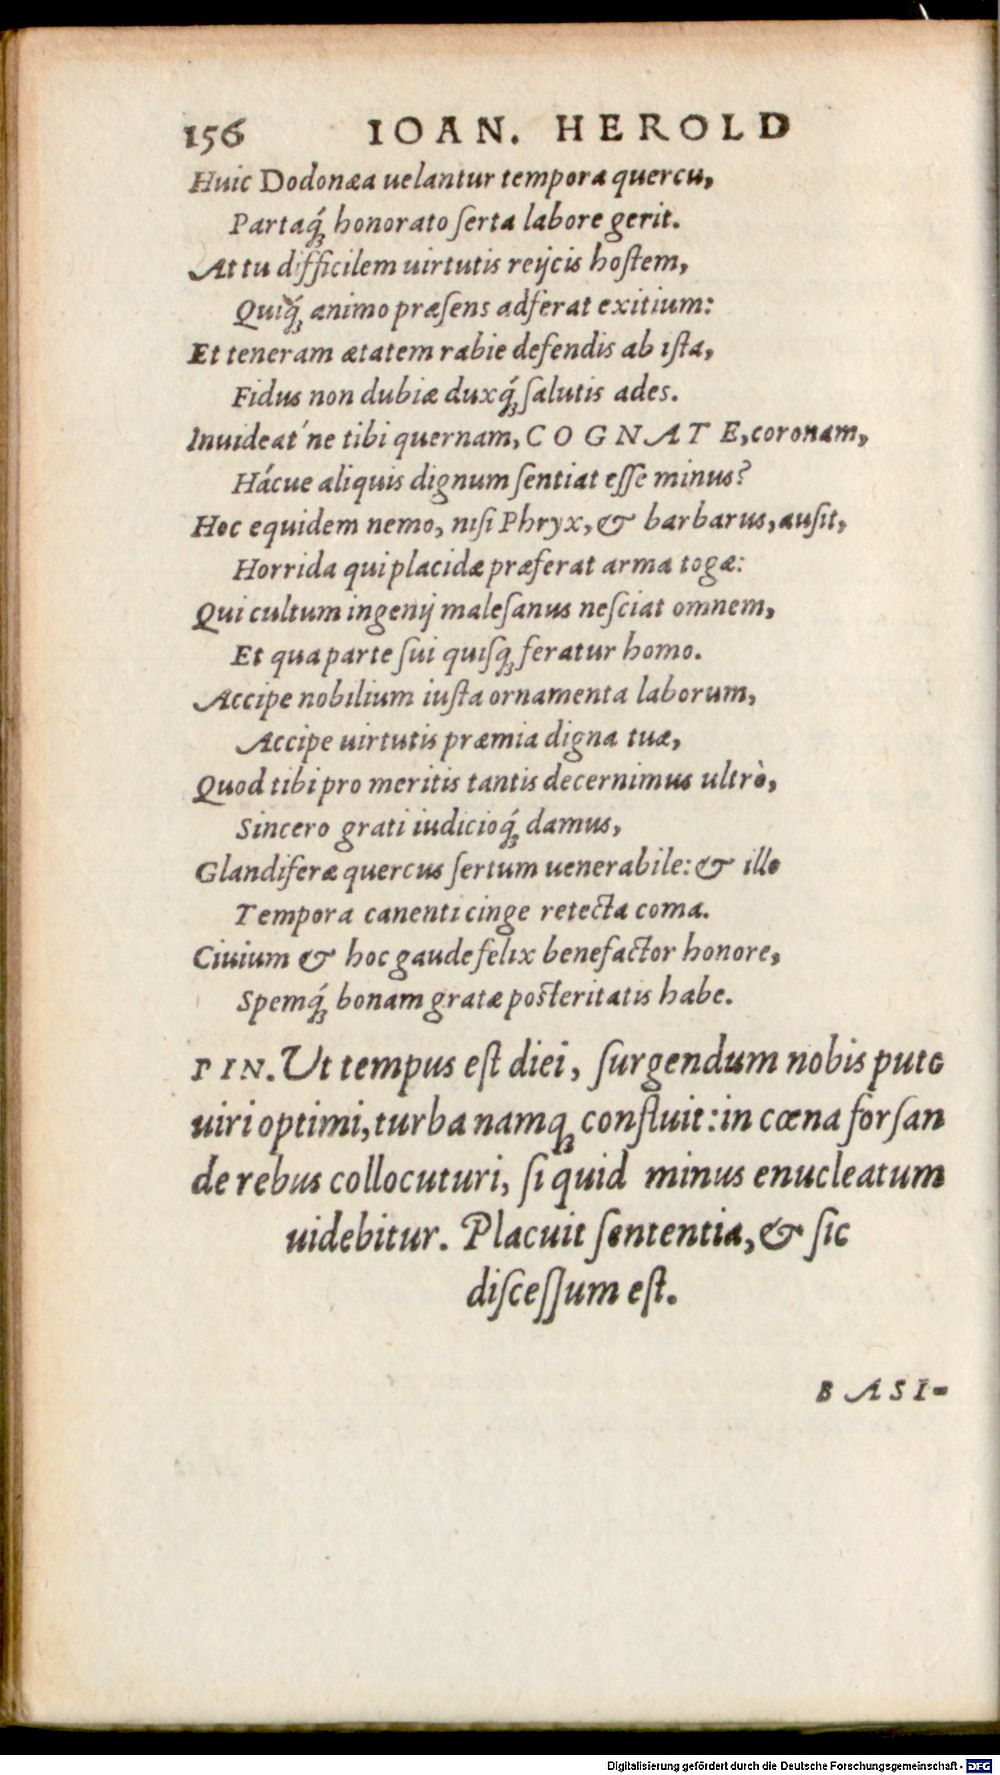 156 IOAN. HEROLD
Huic Dodonæa uelantur tempora quercu,
Partaq́ꝫ honorato ſerta labore gerit.
At tu difficilem uirtutis reijcis hoſtem,
Quiq́ꝫ animo præſens adferat exitium:
Et teneram ætatem rabie defendis ab iſta,
Fidus non dubiæ duxq́ꝫ ſalutis ades.
Inuideat´ne tibi quernam, COGNATE, coronam,
Hácue aliquis dignum ſentiat eſſe minus?
Hoc equidem nemo, niſi Phryx, & barbarus, auſit,
Horrida qui placidæ præferat arma togæ:
Qui cultum ingenij maleſanus neſciat omnem,
Et qua parte ſui quiſqꝫ feratur homo.
Accipe nobilium iuſta ornamenta laborum,
Accipe uirtutis præmia digna tuæ,
Quod tibi pro meritis tantis decernimus ultrò,
Sincero grati iudicioq́ꝫ damus,
Glandiferæ quercus ſertum uenerabile: & illo
Tempora canenti cinge retecta coma.
Ciuium & hoc gaude felix benefactor honore,
Spemq́ꝫ bonam gratæ poſteritatis habe.
PIN. Ut tempus eſt diei, ſurgendum nobis puto
uiri optimi, turba namqꝫ confluit: in cœna forſan
de rebus collocuturi, ſi quid minus enucleatum
uidebitur. Placuit ſententia, & ſic
diſceſſum eſt.
BASI-
Digitalisierung gefördert durch die Deutsche Forschungsgemeinschaft - DFG